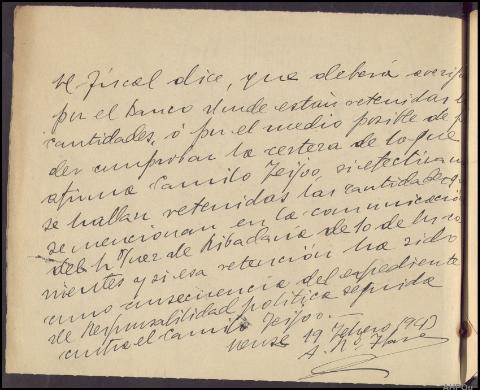 El Fiscal dice, que deberá averig
por el Banco donde están retenidas l
cantidades, ó por el medio posible de p
der comprobar la certeza de lo que
afirma Camilo Feijoo, si efectivam
se hallan retenidas las cantidades q
se mencionan en la comunicación
del Sr Juez de Ribadavia de 10 de los co
rrientes y si esa retención ha sido
como consecuencia del expediente
de Responsabilidad política seguida
contra el Camilo Feijoo.
Orense 19 Febrero 1943